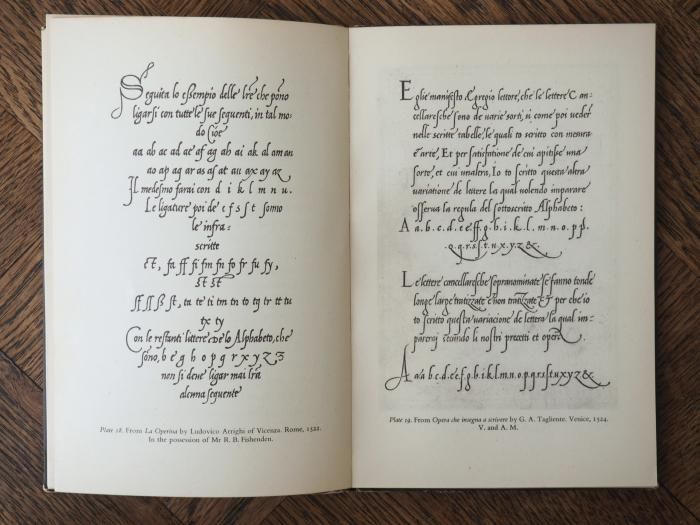 Seguita lo essempio delle lre che pono
ligarsi con tutte le sue seguenti, in tal mo-
do Cioe
aa ab ac ad ae af ag ah ai ak al am an
ao ap aq ar as aſ at au ax ay az
Il medesmo farai con d i k l m n u.
Le ligature poi de c f s ſ t sonno
le infra-
scritte
ct, fa ff fi fm fn fo fr fu fy,
st ſt
ſſ ſſ ß ſt, ta te ti tm tn to tq tr tt tu
tx ty
Con le restanti littere de lo Alphabeto, che
sono, b e g h o p q r x y z 3
non si deve ligar mai lra
alcuna seguente
Plate 18. From La Operina by Ludovico Arrighi of Vicenza. Rome, 1522.
In the possession of Mr R. B. Fishenden.
Eglie manifesto Egregio lettore, che le lettere Can-
cellaresche sono de varie sorti, si come poi veder
nelle scritte tabelle, le quali to scritto con mesura
e arte, Et per satisfatione de cui apitisse una
sorte, et cui unaltra, Io to scritto questa altra
variatione de lettere la qual volendo imparare
osserva la regula del sottoscritto Alphabeto:
A a.b.c.d.e.ff.g.h.i.k.l.m.n.o.p.p.
q.q.r.s.s.t.u.x.y.z.&.
Le lettere cancellaresche sopranominate se fanno tonde
longe large tratizzate e non tratizate ET per che io
to scritto questa variacione de lettera la qual im-
pareraj secundo li nostri precetti et opera
A a.a.b.c.d.e.e.f.g.b.i.k.l.m.n.o.p.q.r.s.s.t.u.x.y.z.&.
Plate 19. From Opera che insegna a scrivere by G. A. Tagliente. Venice, 1524.
V. and A. M.